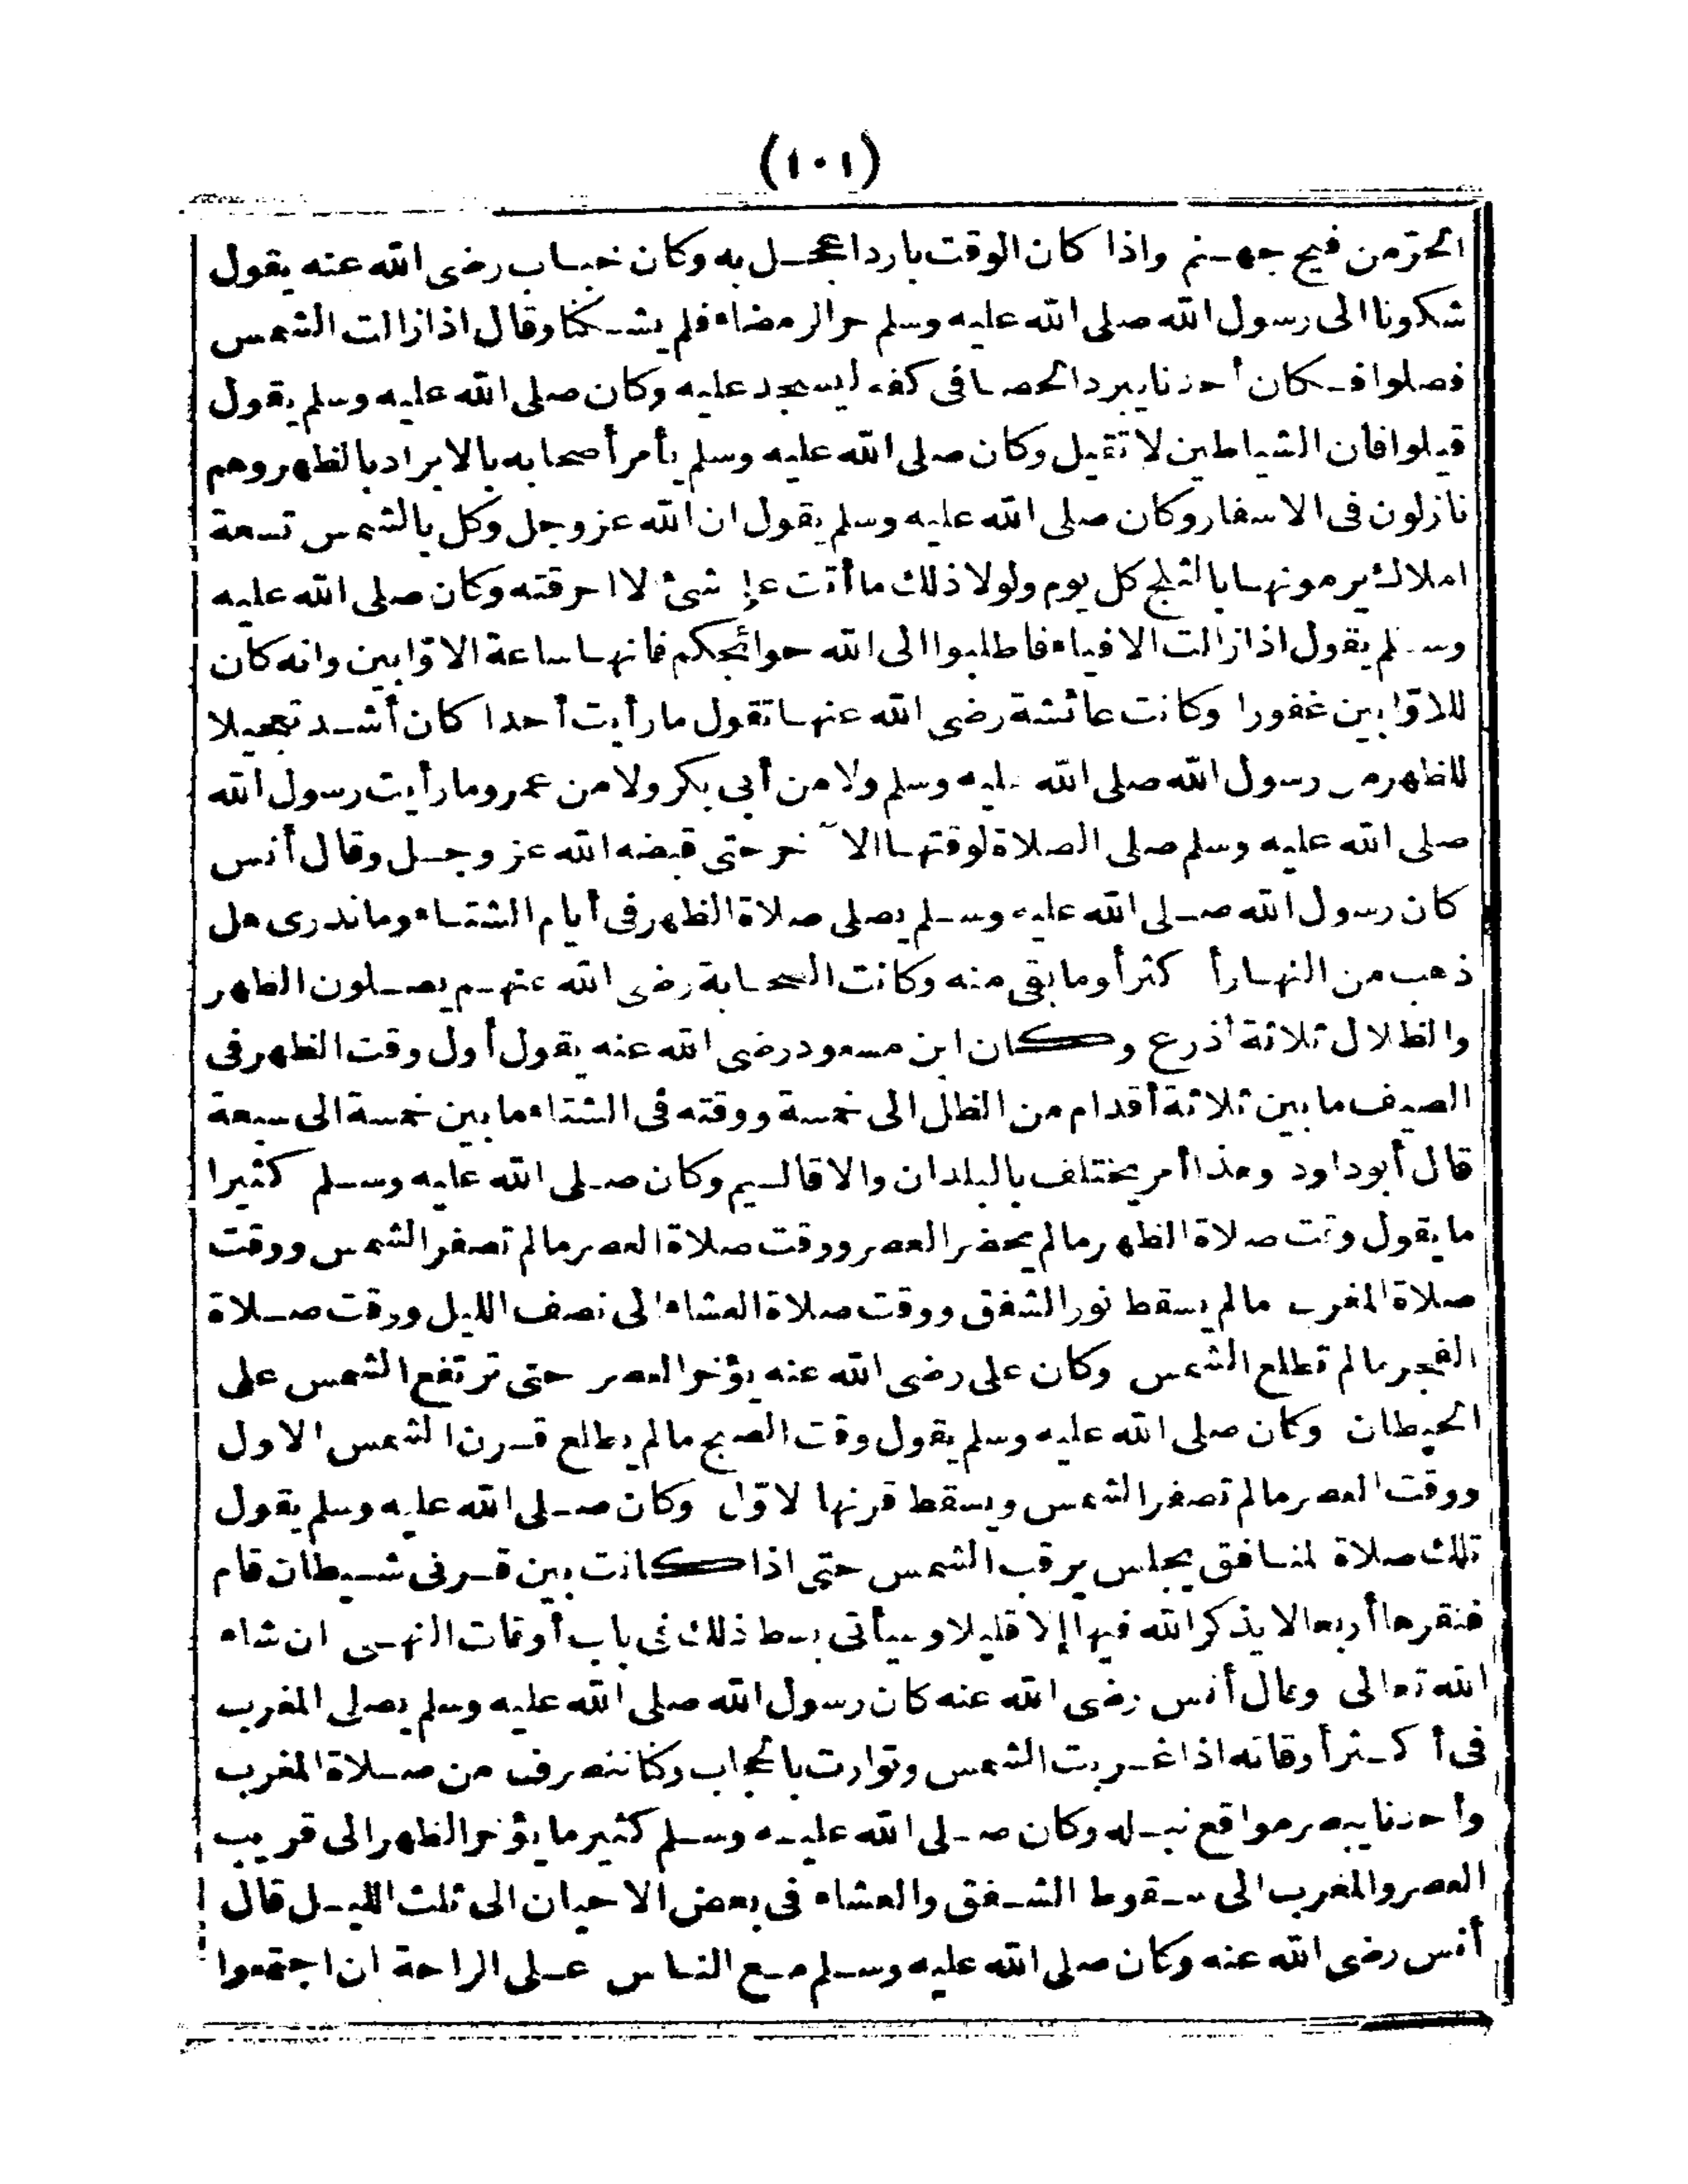 (١٠١)
الحرّ من فيح جهنم واذا كان الوقت باردا عجل به وكان خباب رضى الله عنه يقول
شكونا الى رسول الله صلى الله عليه وسلم حر الرمضاء فلم يشكنا وقال اذا زالت الشمس
فصلوا فكان أحدنا يبرد الحصا فى كفه ليسجد عليه وكان صلى الله عليه وسلم يقول
قيلوا فان الشياطين لا تقيل وكان صلى الله عليه وسلم يأمر أصحابه بالابراد بالظهر وهم
نازلون فى الاسفار وكان صلى الله عليه وسلم يقول ان الله عز وجل وكل بالشمس تسعة
املاك يرمونها بالثلج كل يوم ولولا ذلك ما أتت على شئ الا احرقته وكان صلى الله عليه
وسلم يقول اذا زالت الافياء فاطلبوا الى الله حوائجكم فانها ساعة الاوّابين وانه كان
للاوّابين غفورا وكانت عائشة رضى الله عنها تقول ما رأيت أحدا كان أشد تعجيلا
للظهر من رسول الله صلى الله عليه وسلم ولا من أبى بكر ولا من عمر وما رأيت رسول الله
صلى الله عليه وسلم صلى الصلاة لوقتها الآخر حتى قبضه الله عز وجل وقال أنس
كان رسول الله صلى الله عليه وسلم يصلى صلاة الظهر فى أيام الشتاء وما ندرى هل
ذهب من النهار أكثر أو ما بقى منه وكانت الصحابة رضى الله عنهم يصلون الظهر
والظلال ثلاثة أذرع وكان ابن مسعود رضى الله عنه يقول أول وقت الظهر فى
الصيف ما بين ثلاثة أقدام من الظل الى خمسة ووقته فى الشتاء ما بين خمسة الى سبعة
قال أبو داود وهذا أمر يختلف بالبلدان والاقاليم وكان صلى الله عليه وسلم كثيرا
ما يقول وقت صلاة الظهر ما لم يحضر العصر ووقت صلاة العصر ما لم تصفر الشمس ووقت
صلاة المغرب ما لم يسقط نور الشفق ووقت صلاة العشاء الى نصف الليل ووقت صلاة
الفجر ما لم تطلع الشمس وكان على رضى الله عنه يؤخر العصر حتى ترتفع الشمس على
الحيطان وكان صلى الله عليه وسلم يقول وقت الصبح ما لم يطلع قرن الشمس الاول
ووقت العصر ما لم تصفر الشمس ويسقط قرنها الاوّل وكان صلى الله عليه وسلم يقول
تلك صلاة المنافق يجلس يرقب الشمس حتى اذا كانت بين قرنى شيطان قام
فنقرها أربعا لا يذكر الله فيها إلا قليلا وسيأتى بسط ذلك فى باب أوقات النهى ان شاء
الله تعالى وقال أنس رضى الله عنه كان رسول الله صلى الله عليه وسلم يصلى المغرب
فى أكثر أوقاته اذا غربت الشمس وتوارت بالحجاب وكنا ننصرف من صلاة المغرب
وأحدنا يبصر مواقع نبله وكان صلى الله عليه وسلم كثير ما يؤخر الظهر الى قريب
العصر والمغرب الى سقوط الشفق والعشاء فى بعض الاحيان الى ثلث الليل قال
أنس رضى الله عنه وكان صلى الله عليه وسلم مع الناس على الراحة ان اجتمعوا